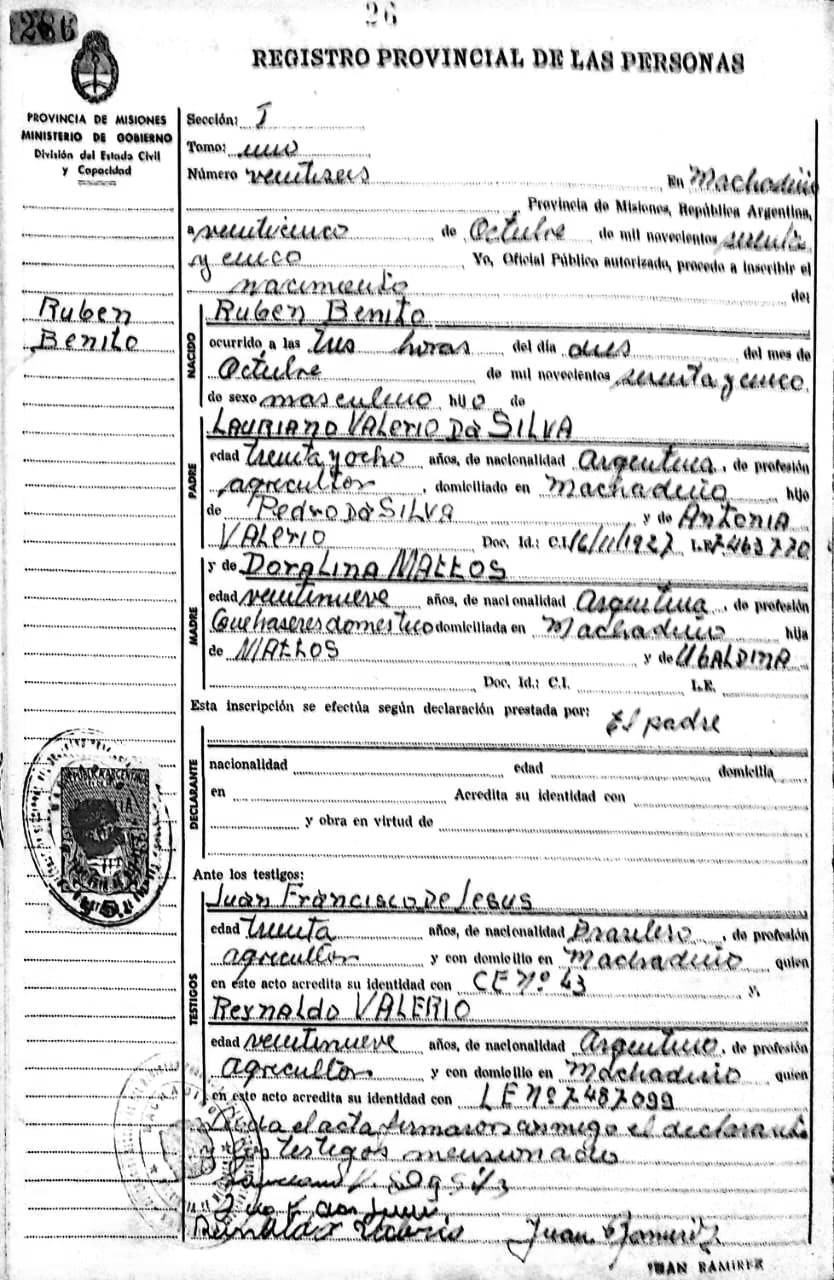 286
26
REGISTRO PROVINCIAL DE LAS PERSONAS
PROVINCIA DE MISIONES
MINISTERIO DE GOBIERNO
División del Estado Civil
y Capacidad
Sección: I
Tomo: uno
Número veintiseis En Machadiño
Provincia de Misiones, República Argentina,
a veinticinco de Octubre de mil novecientos sesenta
y cinco, Yo, Oficial Público autorizado, procedo a inscribir el
nacimiento de:
Ruben
Benito
NACIDO
Ruben Benito
ocurrido a las tres horas del día dies del mes de
Octubre de mil novecientos sesenta y cinco.
de sexo masculino hijo de
PADRE
LAURIANO VALERIO DA SILVA
edad treinta y ocho años, de nacionalidad Argentina, de profesión
agricultor, domiciliado en Machadiño hijo
de Pedro DA SILVA y de ANTONIA
VALERIO Doc. Id.: C.I. 16/11/1927 L.E. 7463770
y de DORALINA MATTOS
MADRE
edad veintinueve años, de nacionalidad Argentina, de profesión
Quehaseres domestico domiciliada en Machadiño hija
de MATTOS y de UBALDINA
Doc. Id.: C.I. L.E.
Esta inscripción se efectúa según declaración prestada por: El padre
DECLARANTE
nacionalidad edad domicilia
en Acredita su identidad con
y obra en virtud de
Ante los testigos:
TESTIGOS
Juan Francisco De Jesus
edad treinta años, de nacionalidad Brasilero, de profesión
agricultor y con domicilio en Machadiño quien
en este acto acredita su identidad con CE Nº 43 y,
Reynaldo VALERIO
edad veintinueve años, de nacionalidad Argentino, de profesión
agricultor y con domicilio en Machadiño quien
en este acto acredita su identidad con LE Nº 7487099
Leida el acta firmaron conmigo el declarante
y los testigos mensionado
Reinaldo Valerio Juan Ramirez
JUAN RAMIREZ